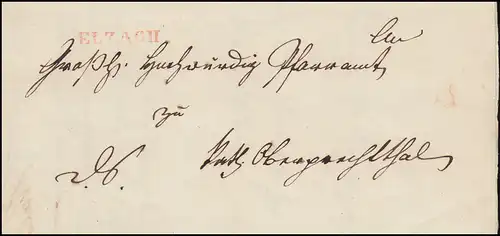 ELZACH.
An
Großh. Hochwürdig Pfarramt
zu
d. S. kath. Oberprechthal